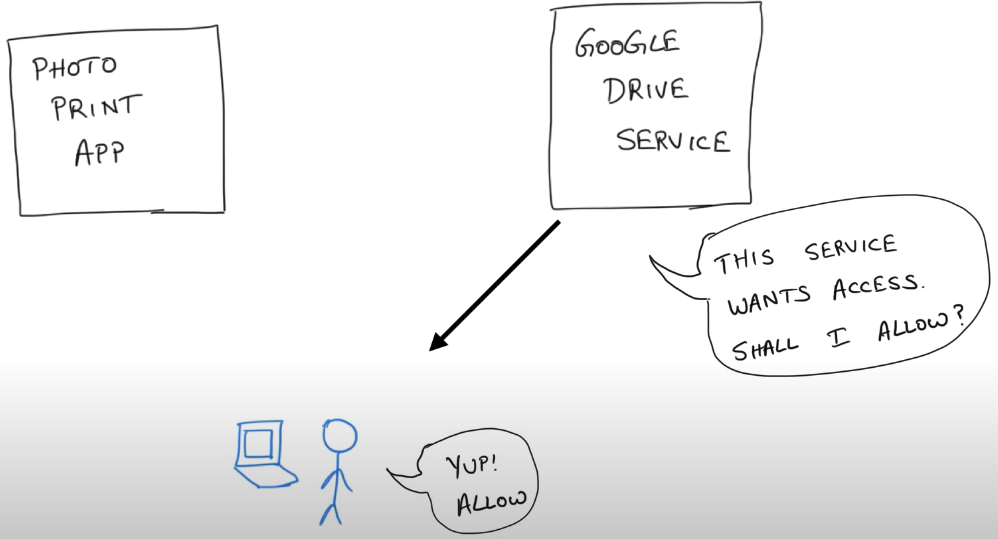 PHOTO
PRINT
APP
GOOGLE
DRIVE
SERVICE
THIS SERVICE
WANTS ACCESS.
SHALL I ALLOW?
YUP!
ALLOW